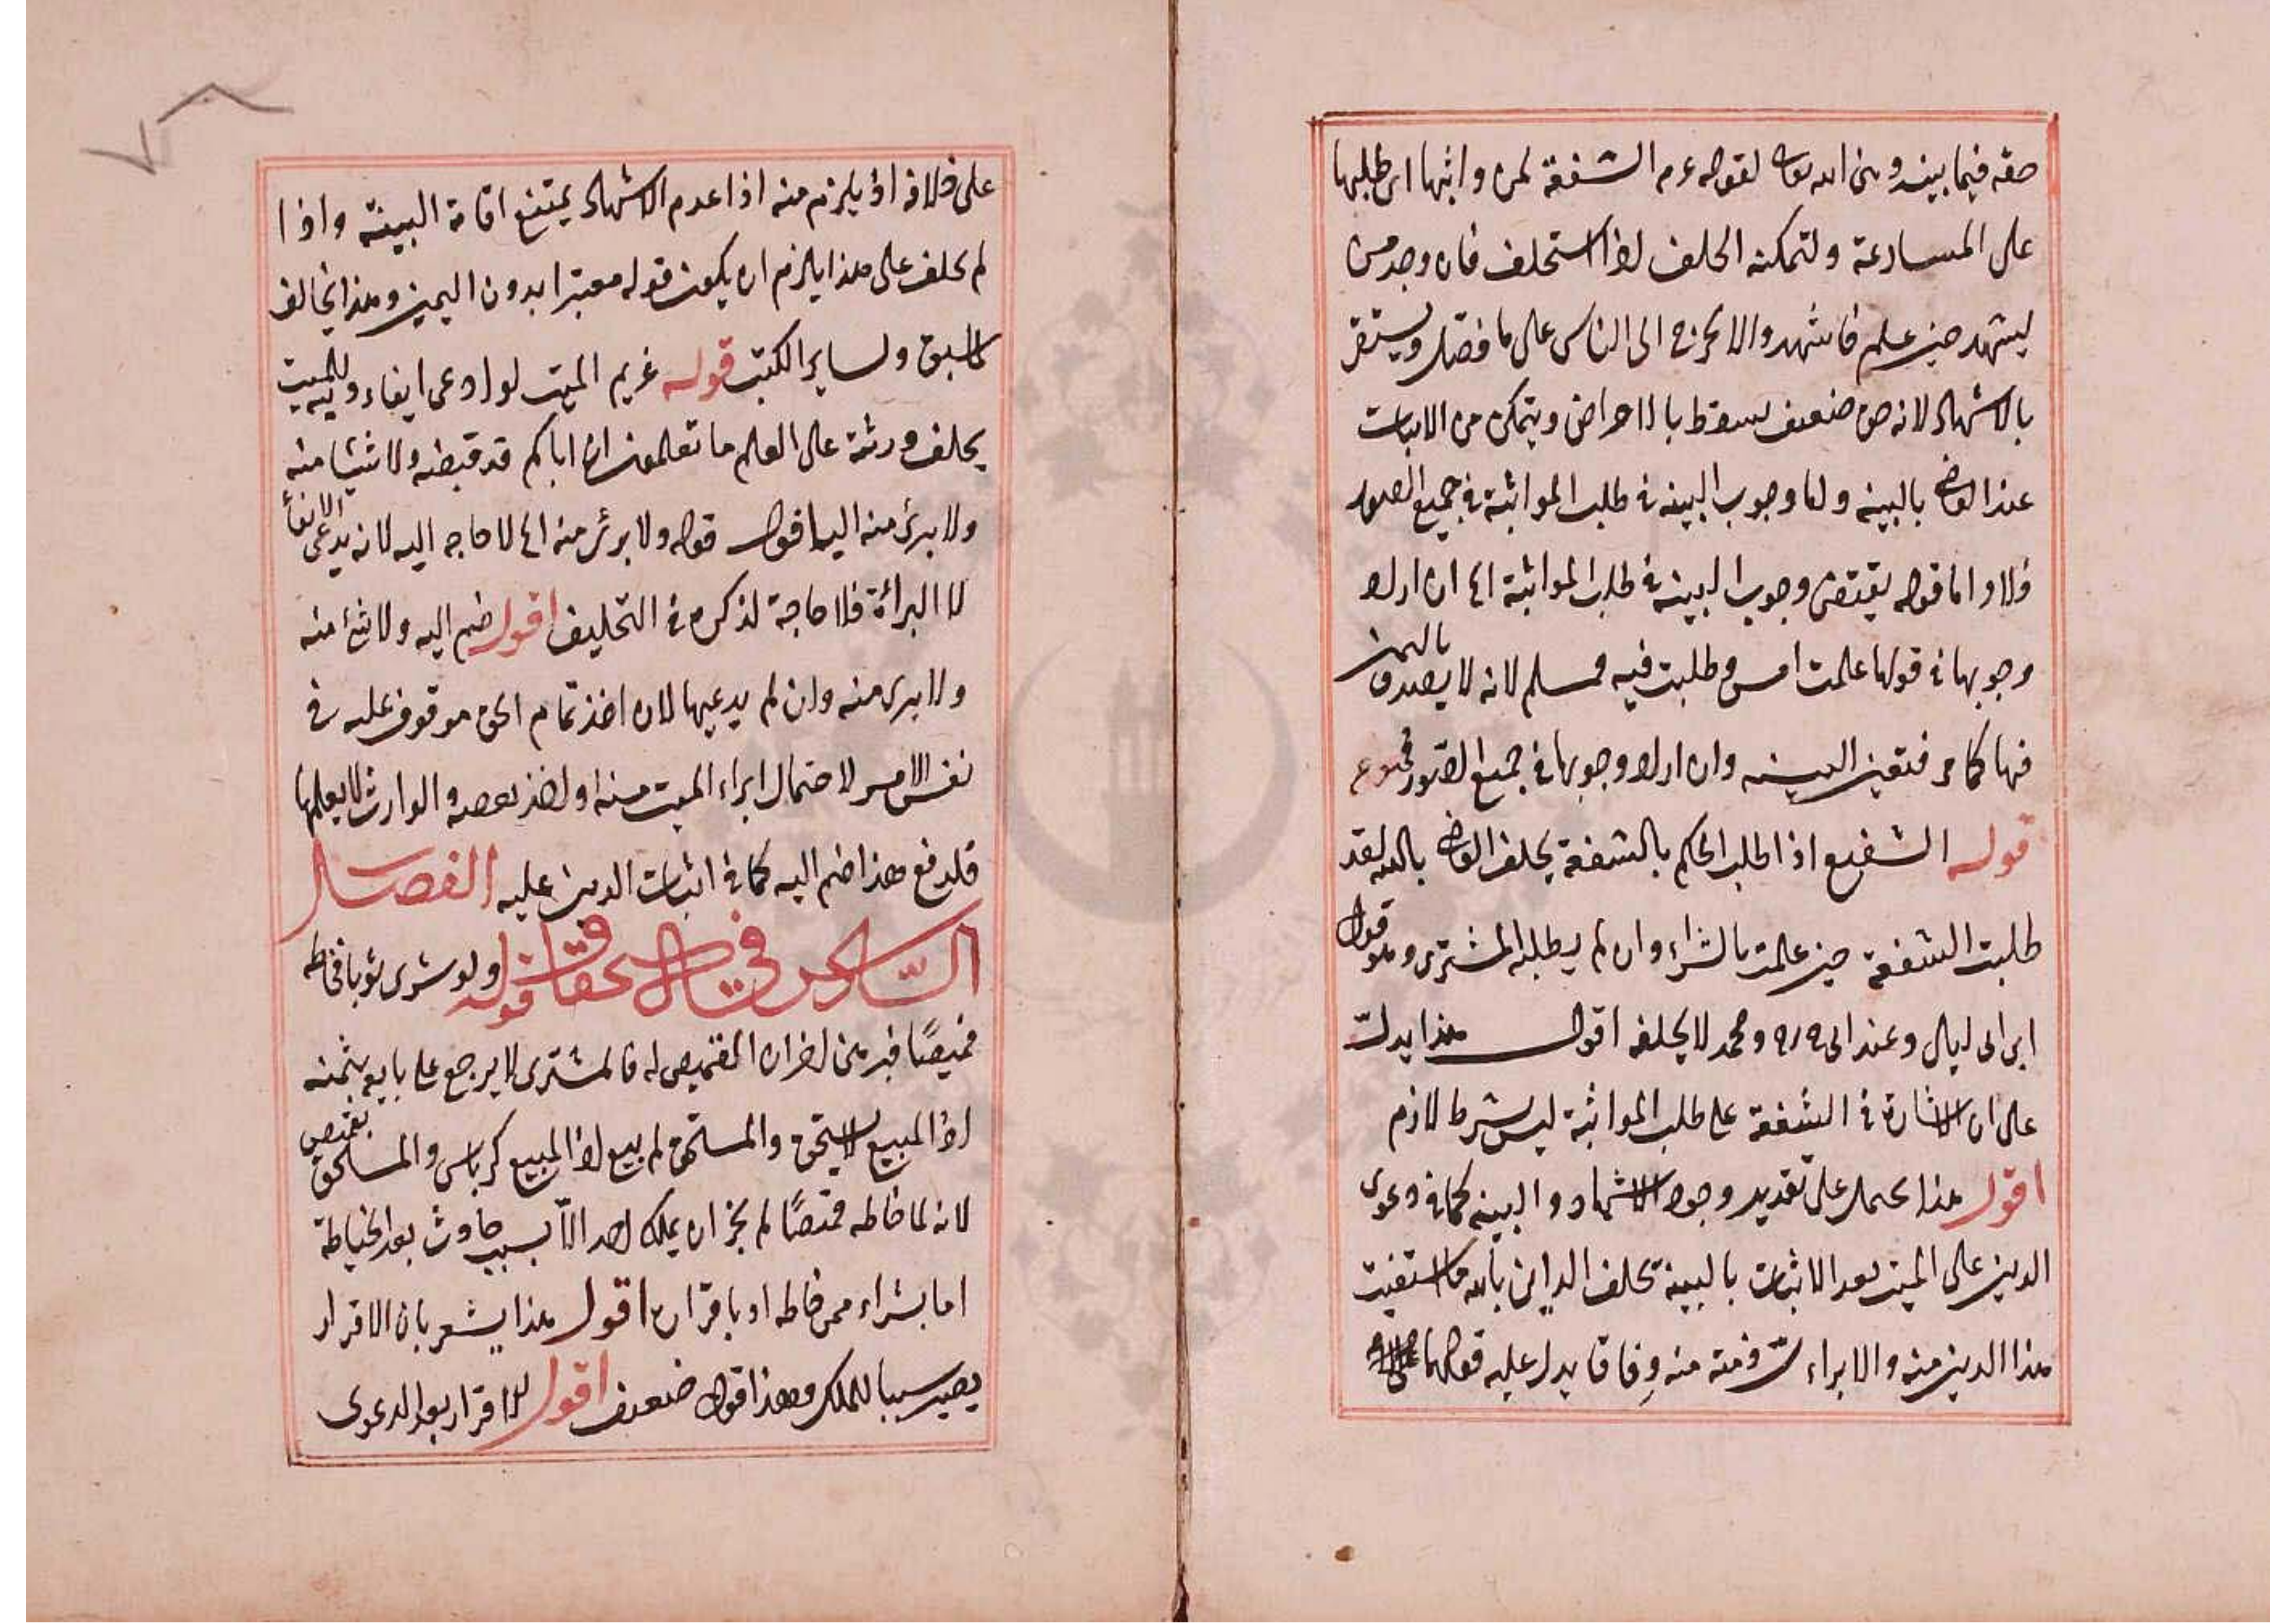 حقه فيما بينه وبين الله تعالى لقوله عم الشفعة لمن واثبها اى طلبها
على المسارعة ولتمكنه الحلف اذا استحلف فان وجد من
يشهد حين علم فاشهد والا يخرج الى الناس على ما فصل ويستقر
بالاشهاد لانه حق ضعيف يسقط بالاعراض ويتمكن من الاثبات
عند القاضى بالبينة واما وجوب البينة فى طلب المواثبة فى جميع الصور
فلا واما قوله يقتضى وجوب البينة فى طلب المواثبة اى ان اراد
وجوبها فى قولها علمت امس وطلبت فيه فمسلم لانه لا يصدق باليمين
فيها كما مر فتعين البينة وان اراد وجوبها فى جميع الصور فممنوع
قوله الشفيع اذا طلب الحكم بالشفعة يحلف القاضى بالله لقد
طلبت الشفعة حين علمت بالشراء وان لم يطلبه المشترى وهو قول
ابن ابى ليلى وعند ابى ومحمد لا يحلفه اقول هذا يدل
على ان الاشارة فى الشفعة على طلب المواثبة ليس بشرط لازم
اقول هذا يحمل على تقدير وجود الاشهاد والبينة كما فى دعوى
الدين على الميت بعد الاثبات بالبينة يحلف الداين بالله ما استفيت
هذا الدين منه والابراء ذمته منه وفاقا يدل عليه قولهما
على خلافه اذ يلزم منه اذا عدم الاشهاد يمتنع اقامة البينة واذا
لم يحلف على هذا يلزم ان يكون قوله معتبرا بدون اليمين وهذا يخالف
لما سبق ولساير الكتب قوله غريم الميت لو ادعى ايفاء دينه للميت
يحلف ورثة على العلم ما تعلمون ان اباكم قد قبضه ولا شيئا منه
ولا برئ منه اليه اقول قوله ولا برئ منه اى لا حاجه اليه لانه يدعى الايفاء
لا البرائة فلا حاجة لذكره فى التحليف اقول ضم اليه ولا شئ منه
ولا برى منه وان لم يدعيها لان اخذ تمام الحق موقوف عليه فى
نفس الامر لاحتمال ابراء الميت منه او اخذ بعضه والوارث لا يعلمها
فلدفع هذا ضم اليه كما فى اثبات الدين عليه الفصل
السادس فى الاستحقاق قوله ولو شرى ثوبا فخاطه
قميصًا فبرهن اخر ان القميص له فالمشترى لا يرجع على بايعه بثمنه
اذ المبيع لا يستحق والمستحق لم يبع اذ المبيع كرباس والمستحق قميص
لانه لما خاطه قميصًا لم يجز ان يملكه احد الّا بسبب حادث بعد الخياطة
اما بشراء ممن خاطه او باقراره اقول هذا يشعر بان الاقرار
يصير سببا للملك وهذا قول ضعيف اقول الاقرار بعد الدعوى